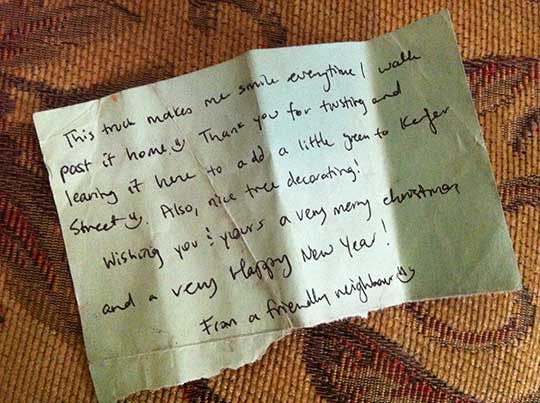 This truck makes me smile everytime I walk
past it home. Thank you for trusting and
leaving it here to add a little green to Keefer
Street. Also, nice tree decorating!
Wishing you & yours a very merry christmas,
and a very Happy New Year!
From a friendly neighbour